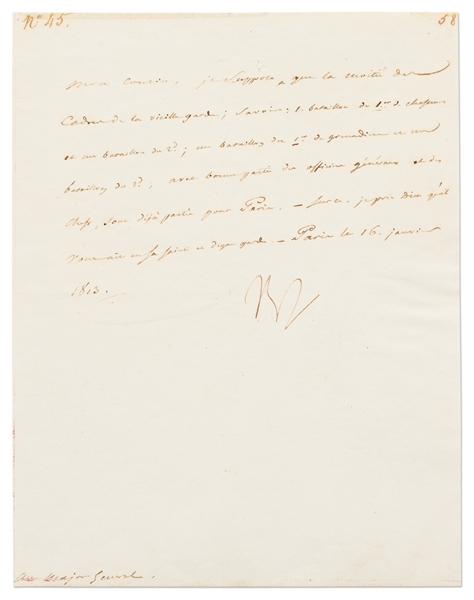 N° 45.
58
Mon Cousin, je suppose que la moitié des
Cadres de la vieille garde; Savoir: 1. bataillon du 1er de chasseurs
et un bataillon du 2d; un bataillon du 1er de grenadiers et un
bataillon du 2d; avec bonne partie des officiers généraux et des
chefs, sont déjà partis pour Paris. – Sur ce, je prie Dieu qu'il
vous ait en sa sainte et digne garde. – Paris le 16. janvier
1813.
Au Major General.